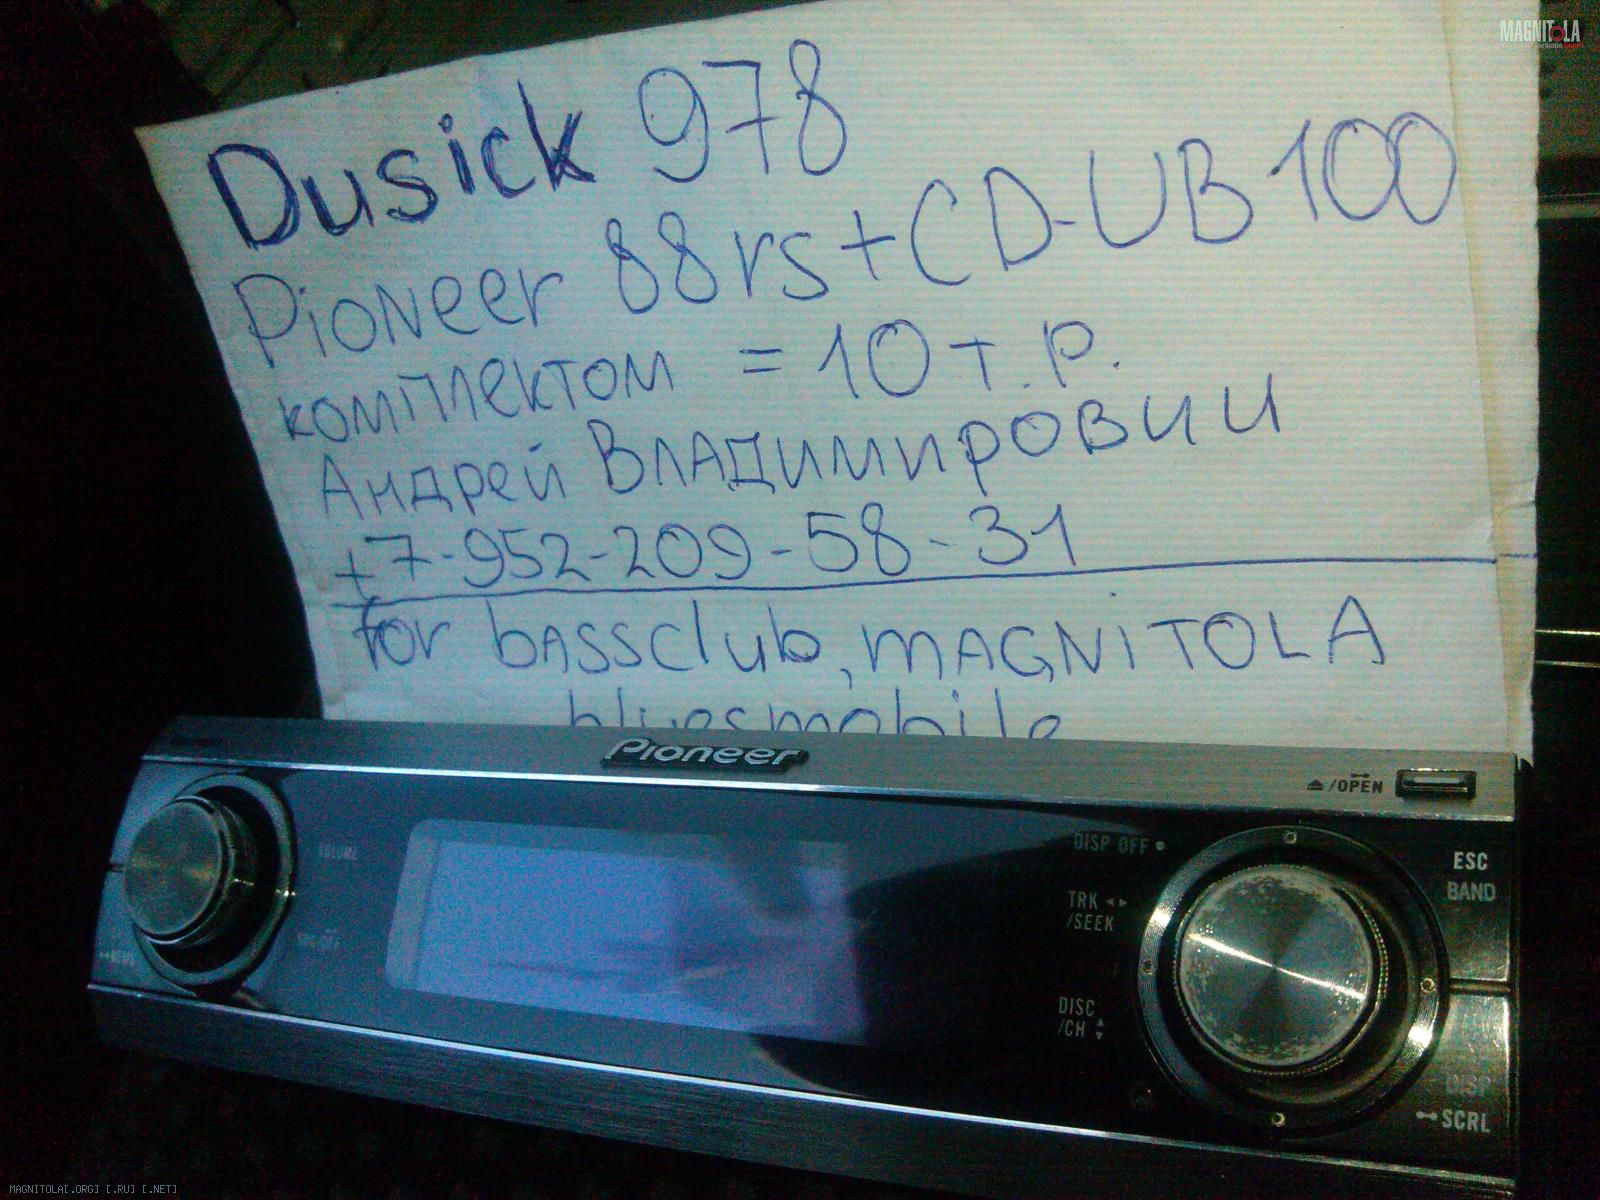 MAGNITOLA
Dusick 978
Pioneer 88rs+CD-UB100
комплектом = 10 т.р.
Андрей Владимирович
+7-952-209-58-31
for bassclub, MAGNITOLA
bluesmobile
Pioneer
/OPEN
VOLUME
SRC/OFF
DISP OFF
TRK
/SEEK
DISC
/CH
ESC
BAND
DISP
SCRL
MAGNITOLA[.ORG] [.RU] [.NET]